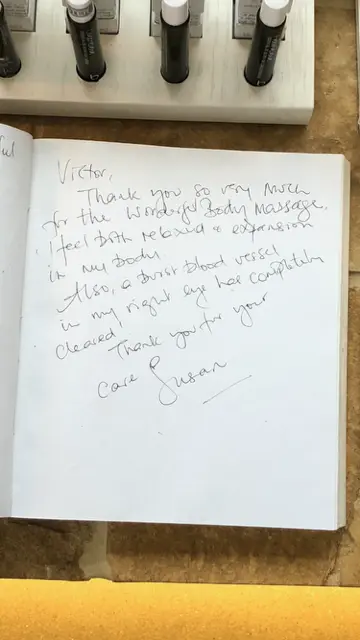 Victor,
Thank you so very much
for the wonderful Body Massage.
I feel both relaxed & expansion
in my body.
Also, a burst blood vessel
in my right eye has completely
cleared!
Thank you for your
care Susan